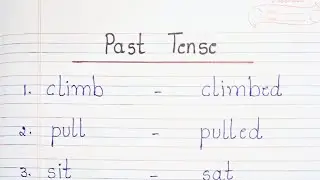 Past Tense
1. climb - climbed
2. pull - pulled
3. sit - sat